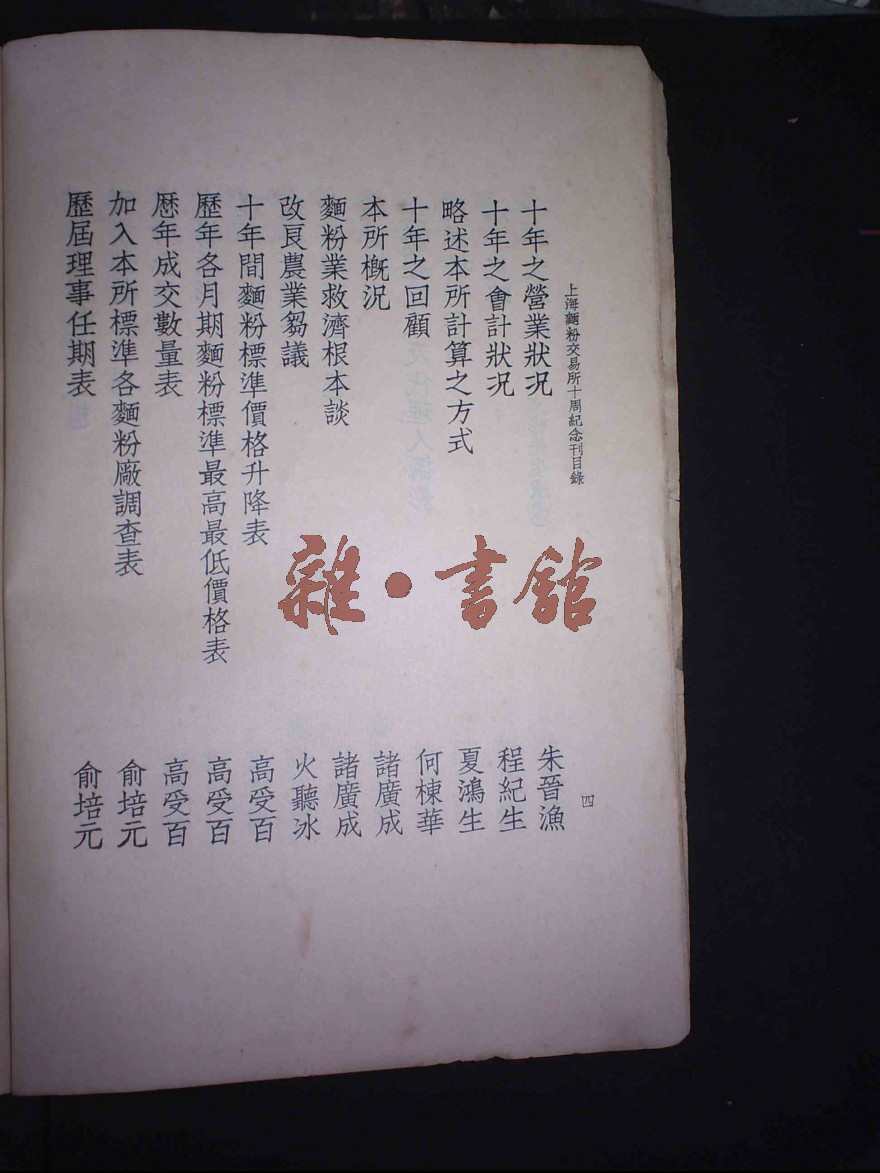 上海麵粉交易所十周紀念刊目錄
四
十年之營業狀況 朱晉漁
十年之會計狀況 程紀生
略述本所計算之方式 夏鴻生
十年之回顧 何棟華
本所槪況 諸廣成
麵粉業救濟根本談 諸廣成
改良農業芻議 火聽冰
十年間麵粉標準價格升降表 高受百
歷年各月期麵粉標準最高最低價格表 高受百
歷年成交數量表 高受百
加入本所標準各麵粉廠調查表 俞培元
歷屆理事任期表 俞培元
雜·書館